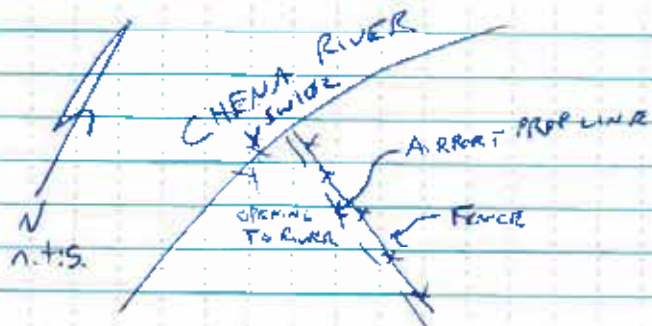 CHENA RIVER
AIRPORT PROP LINE
OPENING
TO RIVER
FENCE
N
n.t.s.